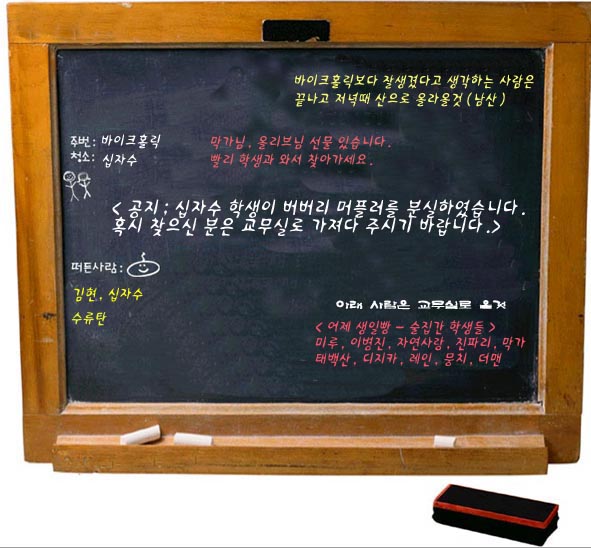 바이크홀릭보다 잘생겼다고 생각하는 사람은
끝나고 저녁때 산으로 올라올것 ( 남산 )
주번 : 바이크홀릭
청소 : 십자수
막가님, 올리브님 선물 있습니다.
빨리 학생과 와서 찾아가세요.
< 공지 : 십자수 학생이 버버리 머플러를 분실하였습니다.
혹시 찾으신 분은 교무실로 가져다 주시기 바랍니다.>
떠든사람 :
김현, 십자수
수류탄
아래 사람은 교무실로 올것
< 어제 생일빵 - 술집간 학생들 >
미루, 이병진, 자연사람, 진파리, 막가
태백산, 디지카, 레인, 뭉치, 더맨